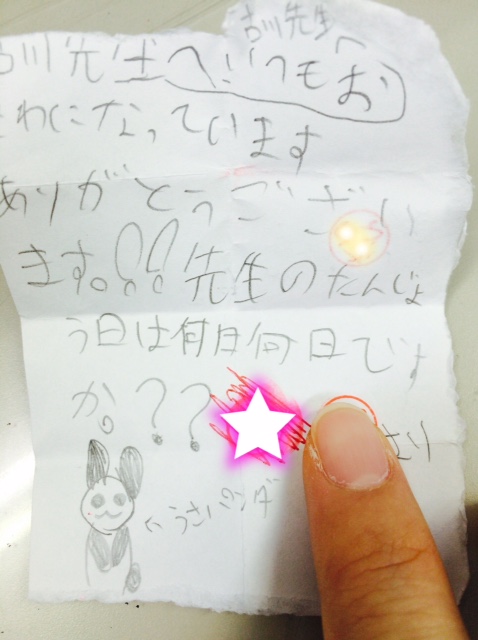 古川先生へ
古川先生へいつもお
せわになっています
ありがとうござい
ます。!!先生のたんじょ
う日は何日何日です
か。??
より
←うさパンダ